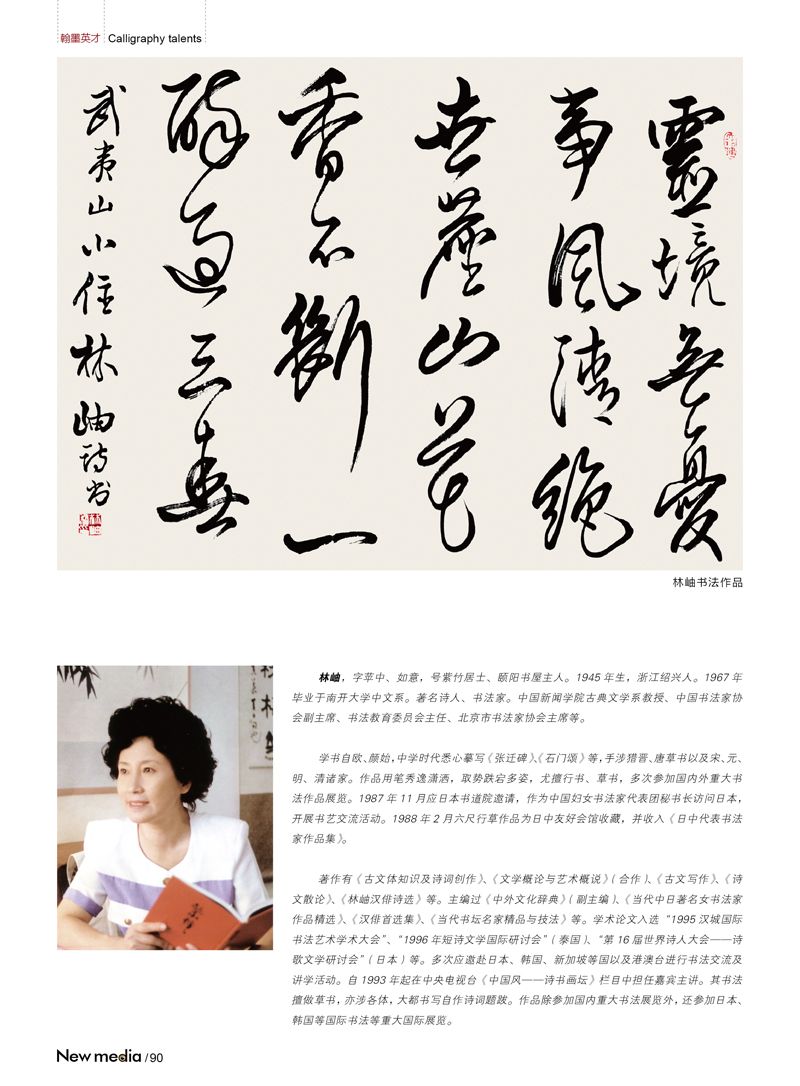 翰墨英才 Calligraphy talents
靈境無憂
事風清絶
世塵山花
香不斷一
醉過三春
武夷山小住林岫詩书
林岫书法作品
林岫，字苹中、如意，号紫竹居士、颐阳书屋主人。1945 年生，浙江绍兴人。1967 年
毕业于南开大学中文系。著名诗人、书法家。中国新闻学院古典文学系教授、中国书法家协
会副主席、书法教育委员会主任、北京市书法家协会主席等。
学书自欧、颜始，中学时代悉心摹写《张迁碑》、《石门颂》等，手涉猎晋、唐草书以及宋、元、
明、清诸家。作品用笔秀逸潇洒，取势跌宕多姿，尤擅行书、草书，多次参加国内外重大书
法作品展览。1987 年 11 月应日本书道院邀请，作为中国妇女书法家代表团秘书长访问日本，
开展书艺交流活动。1988 年 2 月六尺行草作品为日中友好会馆收藏，并收入《日中代表书法
家作品集》。
著作有《古文体知识及诗词创作》、《文学概论与艺术概说》（合作）、《古文写作》、《诗
文散论》、《林岫汉俳诗选》等。主编过《中外文化辞典》（副主编）、《当代中日著名女书法家
作品精选》、《汉俳首选集》、《当代书坛名家精品与技法》等。学术论文入选 “1995 汉城国际
书法艺术学术大会”、“1996 年短诗文学国际研讨会”（泰国）、“第 16 届世界诗人大会——诗
歌文学研讨会”（日本）等。多次应邀赴日本、韩国、新加坡等国以及港澳台进行书法交流及
讲学活动。自 1993 年起在中央电视台《中国风——诗书画坛》栏目中担任嘉宾主讲。其书法
擅做草书，亦涉各体，大都书写自作诗词题跋。作品除参加国内重大书法展览外，还参加日本、
韩国等国际书法等重大国际展览。
New media / 90